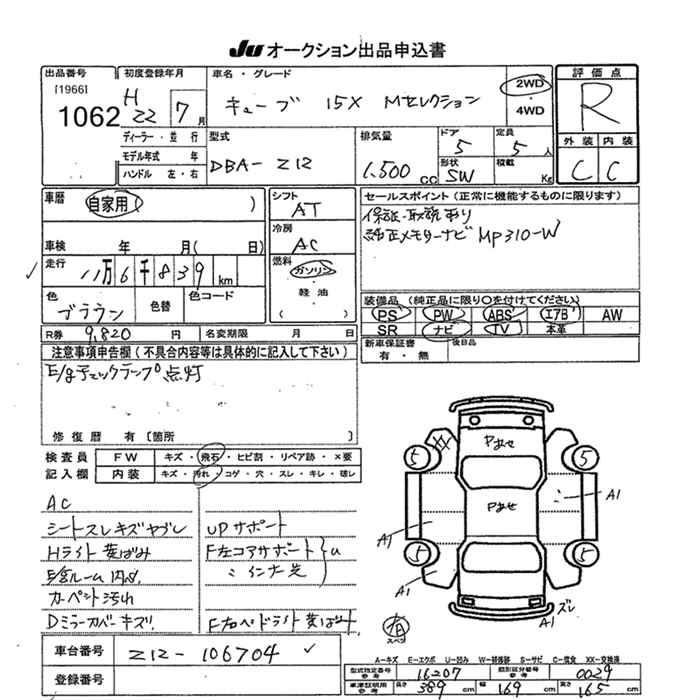 JU オークション出品申込書
出品番号
[1966]
1062
初度登録年月
H 22 7月
ディーラー・並行
モデル年式 年
ハンドル 左・右
車名・グレード
キューブ 15X Mセレクション
2WD
4WD
型式
DBA-Z12
排気量
1,500 CC
ドア
5
形状
SW
定員
5人
積載
Kg
評価点
R
外装 内装
C C
車歴
自家用( )
車検 年 月( 日)
走行
11万6千839km
色
ブラウン
色替
色コード
シフト
AT
冷房
AC
燃料
ガソリン
軽油
( )
セールスポイント(正常に機能するものに限ります)
保証・取説あり
純正メモリーナビ MP310-W
装備品(純正品に限り○を付けてください)
PS PW ABS エアB AW
SR ナビ TV 本革
新車保証書
有・無
後日品
R券 9,820円
名変期限 月 日
注意事項申告欄(不具合内容等は具体的に記入して下さい)
E/gチェックランプ点灯
修復歴 有〔箇所 〕
検査員
記入欄
FW キズ・飛石・ヒビ割・リペア跡・×要
内装 キズ・汚れ・コゲ・穴・スレ・キレ・破レ
AC
シートスレキズヤブレ
Hライト黄ばみ
カーペント汚れ
Dミラーカバーキズ
UPサポート
F左コアサポート
〃 インナ先
U
F右ヘッドライト黄ばみ
Pあせ
Pあせ
XX
5
5
5
5
A1
A1
A1
A1
ズレ
スペア
A-キズ E-エクボ U-凹み W-補修跡 S-サビ C-腐食 XX-交換済
車台番号
Z12-106704
登録番号
型式指定番号
参考
16207
類別区分番号
参考
0029
車庫証明用
参考
長さ 389cm
幅 169cm
高さ 165cm